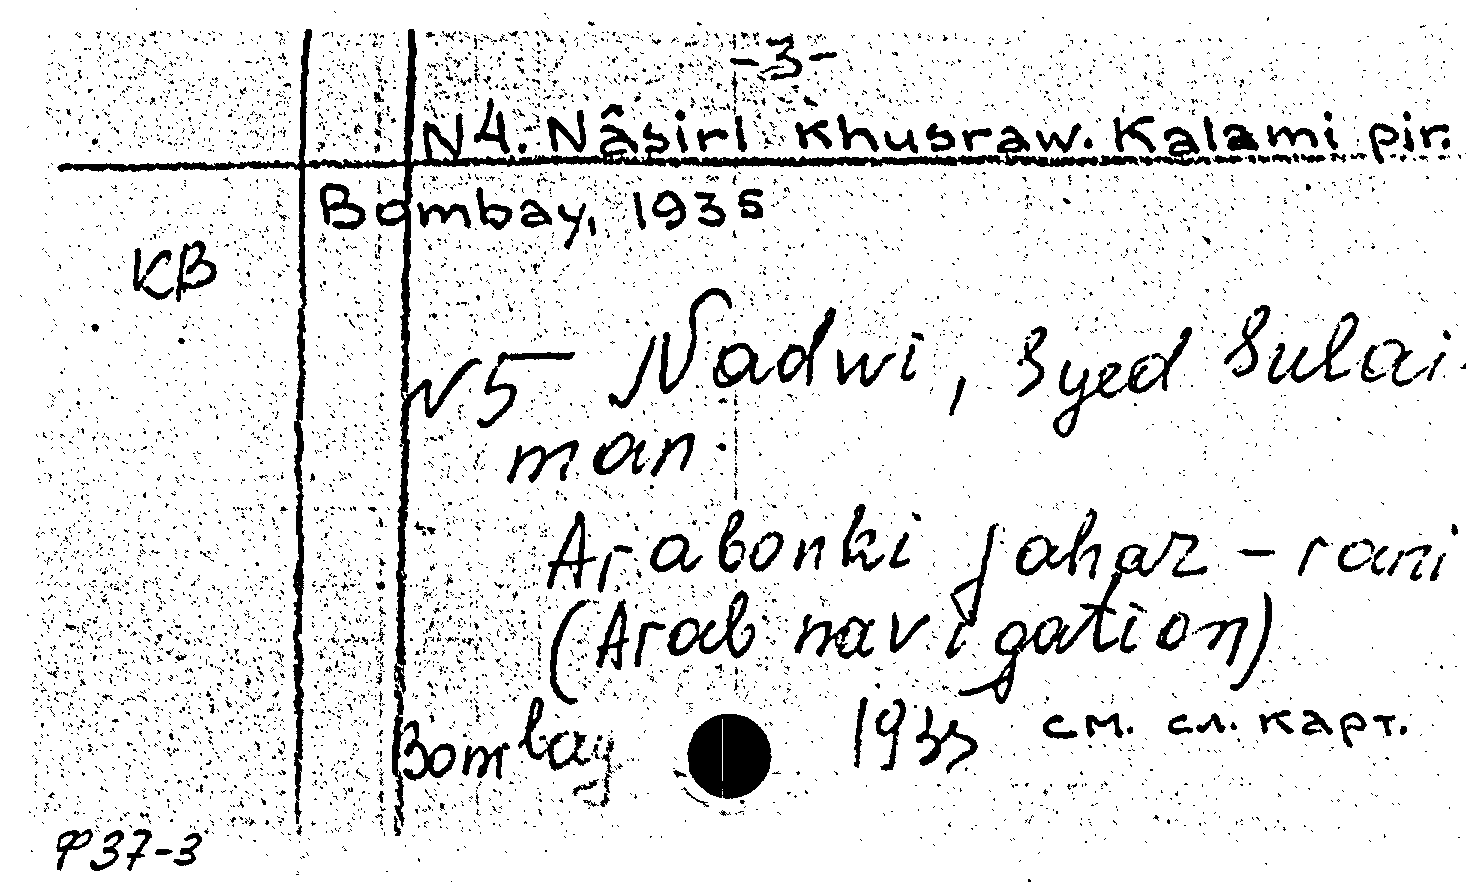 -3-
N4. Nâsirl Khusraw. Kalami pir.
Bombay, 1935
КВ
N5 Nadwi, Syed Sulai-
man.
Arabonki Jahaz-rani
(Arab navigation)
Bombay 1935 см. сл. карт.
Ф37-3